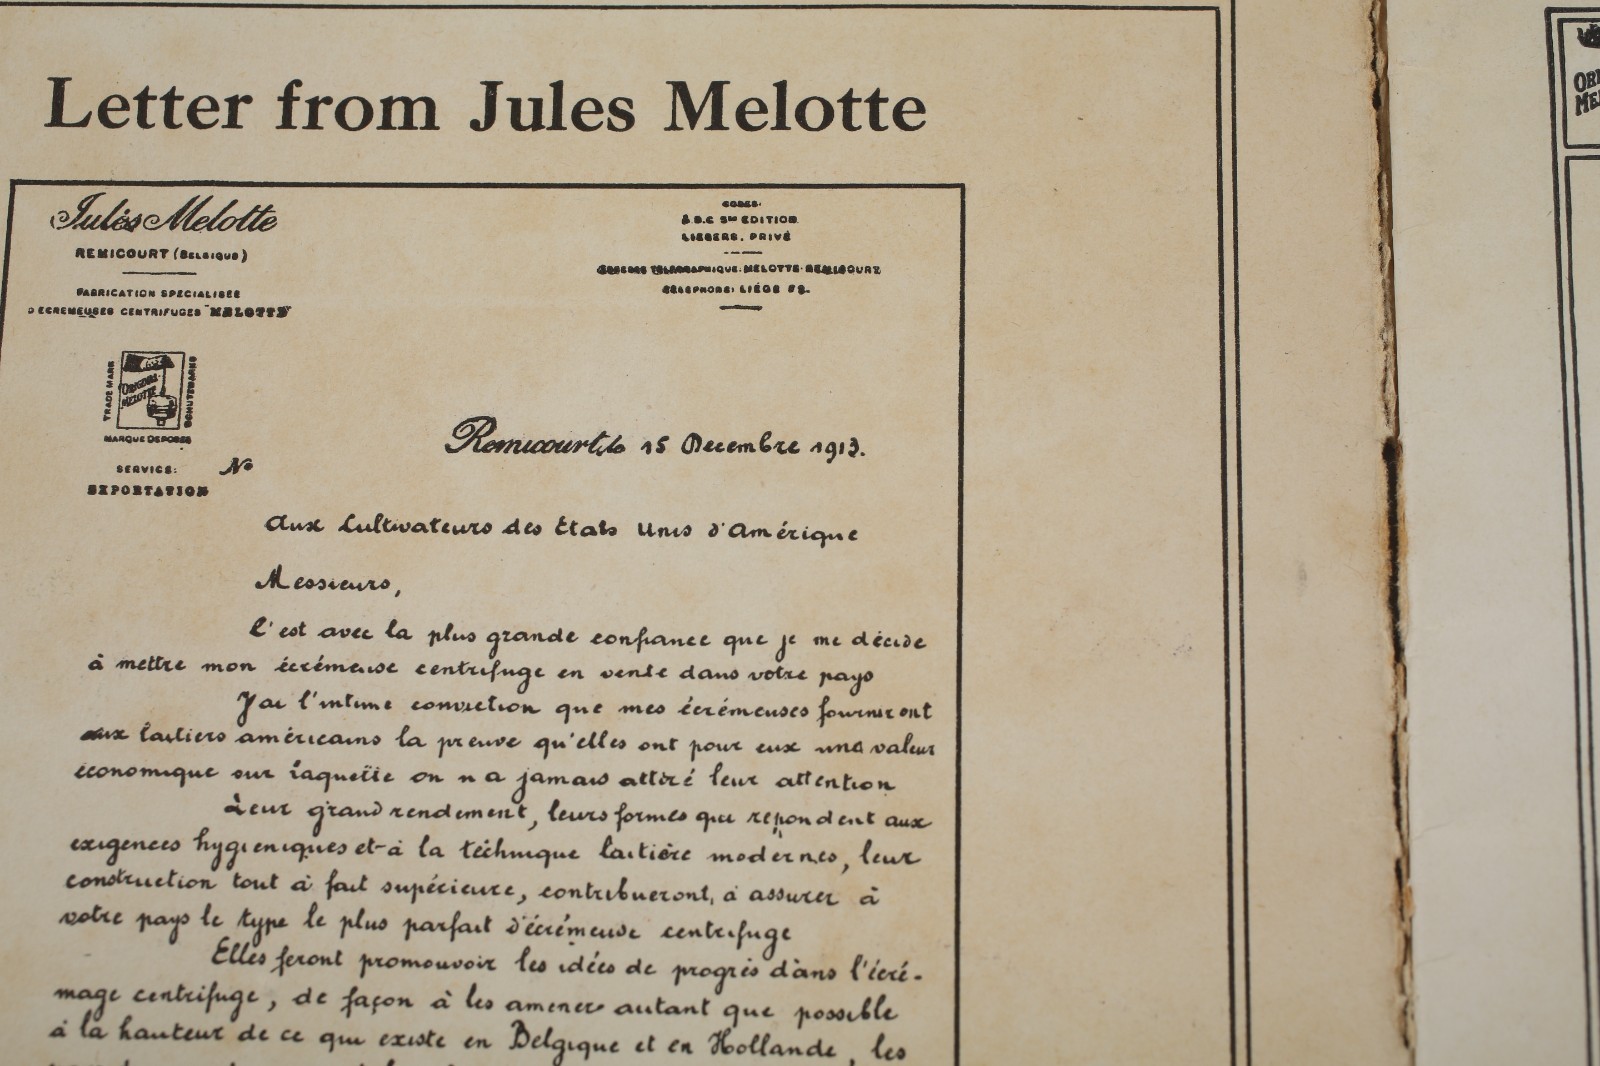 Letter from Jules Melotte
Jules Melotte
REMICOURT (BELGIQUE)
FABRICATION SPÉCIALISÉE
D'ECREMEUSES CENTRIFUGES "MELOTTE"
CODES.
A.B.C 5me EDITION
LIEBERS. PRIVÉ
ADRESSE TÉLÉGRAPHIQUE: MELOTTE-REMICOURT
TÉLÉPHONE: LIÉGE
TRADE MARK
ORIGINAL
MELOTTE
SCHUTZMARKE
MARQUE DEPOSÉE
SERVICE:
EXPORTATION
No
Remicourt, le 15 Decembre 1913.
Aux Cultivateurs des Etats Unis d'Amérique
Messieurs,
C'est avec la plus grande confiance que je me décide
à mettre mon écrémeuse centrifuge en vente dans votre pays
J'ai l'intime conviction que mes écrémeuses fourniront
aux laitiers américains la preuve qu'elles ont pour eux une valeur
économique sur laquelle on n a jamais attiré leur attention
Leur grand rendement, leurs formes qui répondent aux
exigences hygieniques et à la téchnique laitière modernes, leur
construction tout à fait supérieure, contribueront, à assurer à
votre pays le type le plus parfait d'écrémeuse centrifuge
Elles feront promouvoir les idées de progrès dans l'écré-
mage centrifuge, de façon à les amener autant que possible
à la hauteur de ce qui existe en Belgique et en Hollande, les